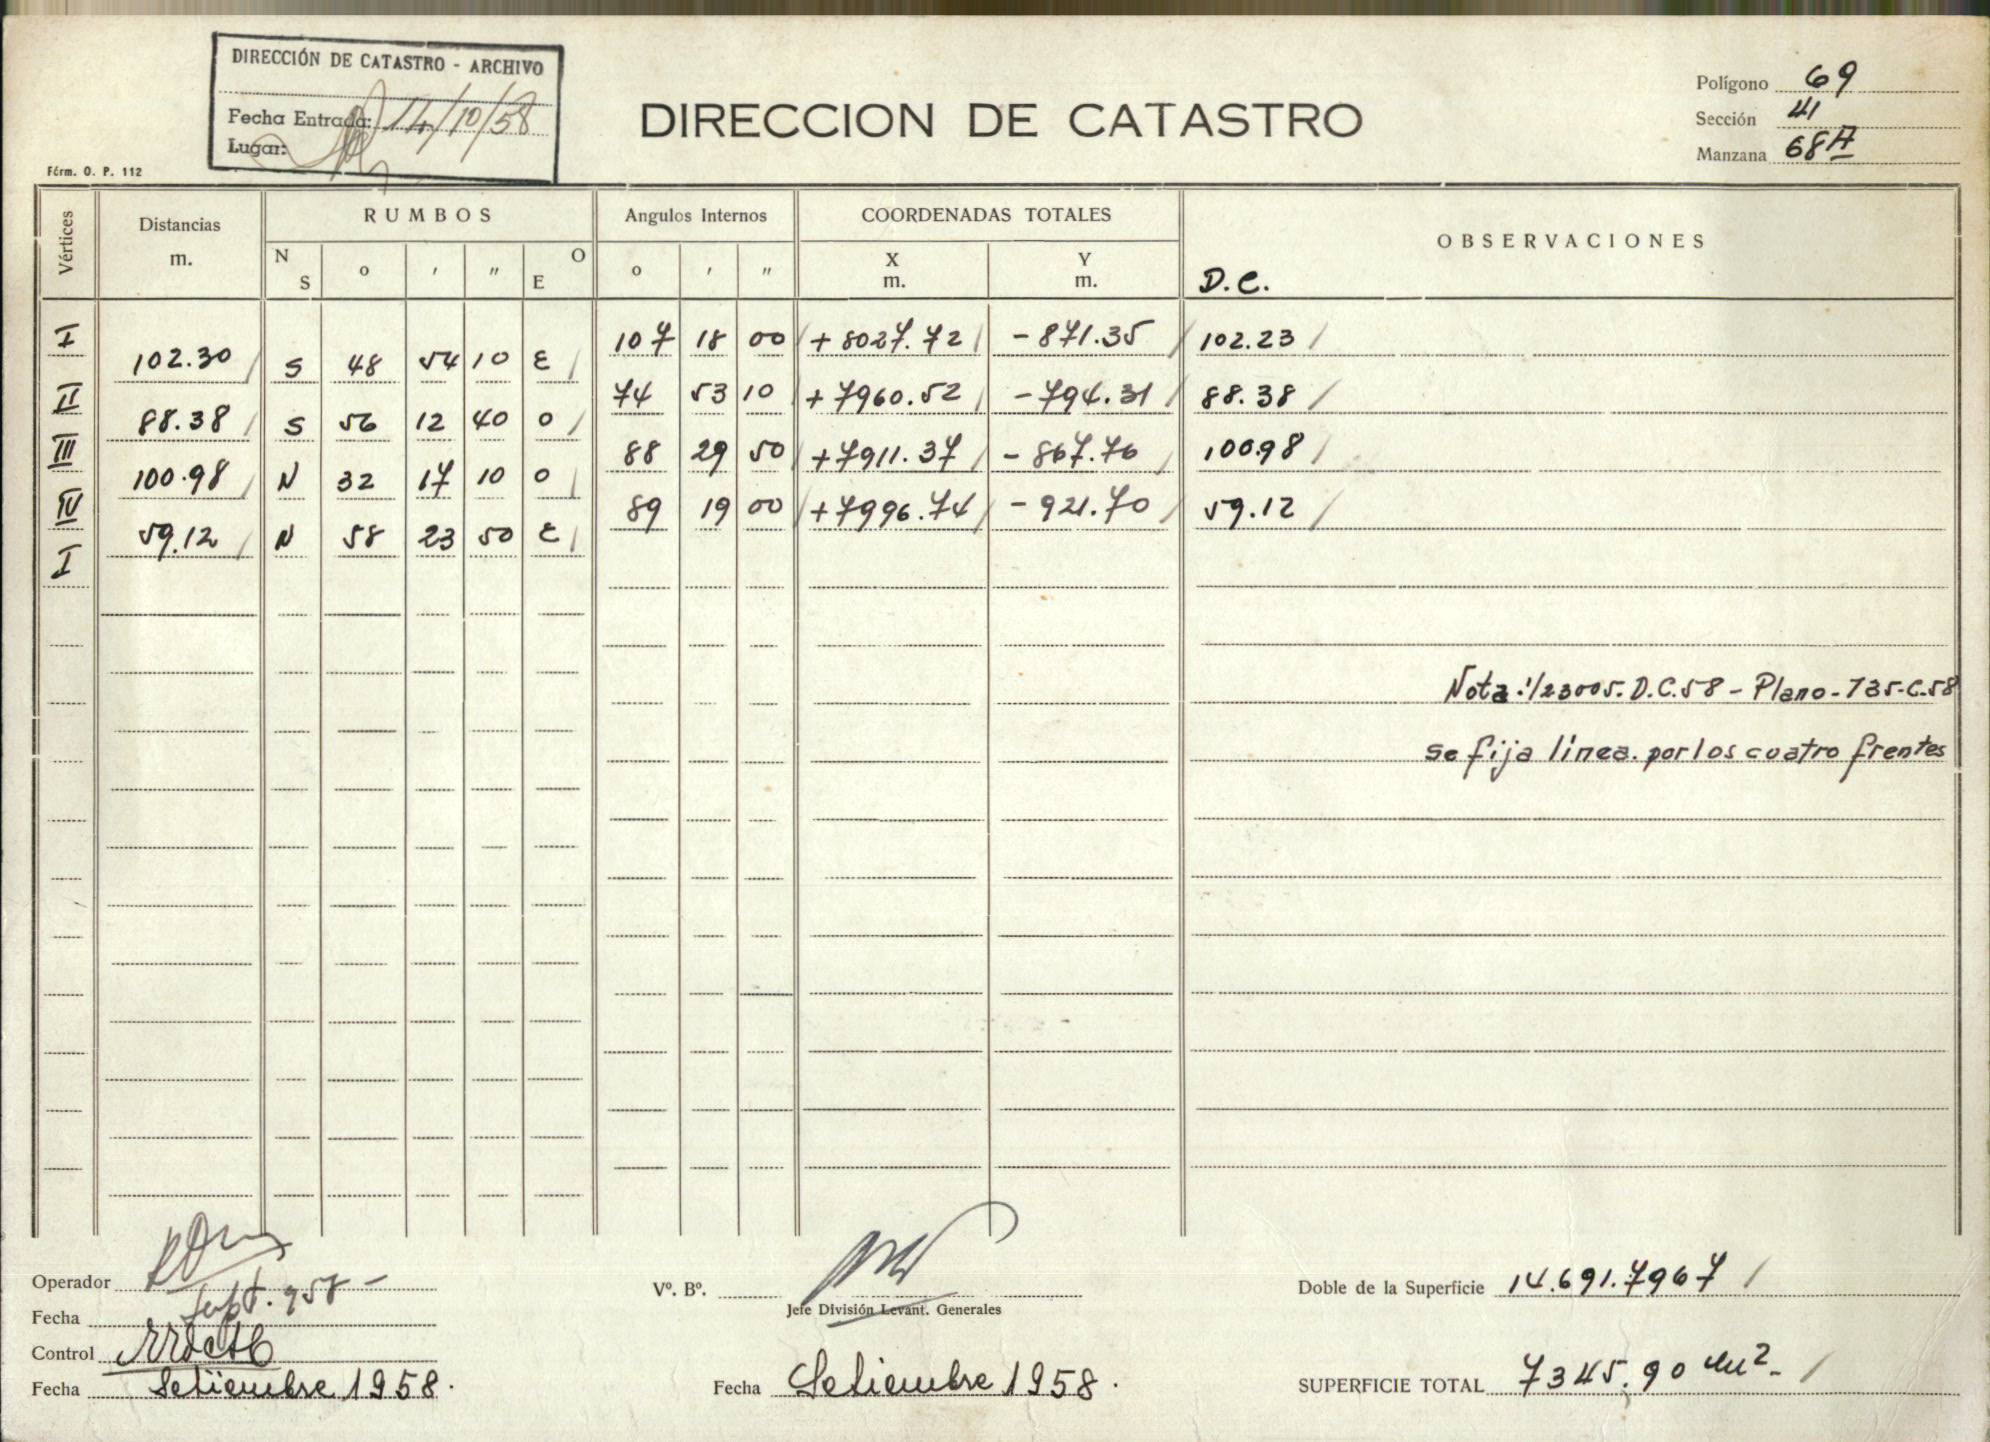 DIRECCIÓN DE CATASTRO - ARCHIVO
Fecha Entrada: 14/10/58
Lugar:
DIRECCION DE CATASTRO
Polígono 69
Sección 41
Manzana 68A
Fórm. O. P. 112
Vértices Distancias m. RUMBOS Angulos Internos COORDENADAS TOTALES OBSERVACIONES
N S o ' " O E o ' " X m. Y m. D.C.
I 107 18 00 +8027.72 -871.35 102.23
102.30 S 48 54 10 E
II 74 53 10 +7960.52 -794.31 88.38
88.38 S 56 12 40 O
III 88 29 50 +7911.37 -867.76 100.98
100.98 N 32 17 10 O
IV 89 19 00 +7996.74 -921.70 59.12
59.12 N 58 23 50 E
I
Nota:1/23005.D.C.58 - Plano-735-C-58
se fija línea. por los cuatro frentes
Operador
Fecha Sept. 958 -
Control
Fecha Setiembre 1958.
Vº. Bº.
Jefe División Levant. Generales
Fecha Setiembre 1958.
Doble de la Superficie 14.691.7967
SUPERFICIE TOTAL 7345.90 m2-